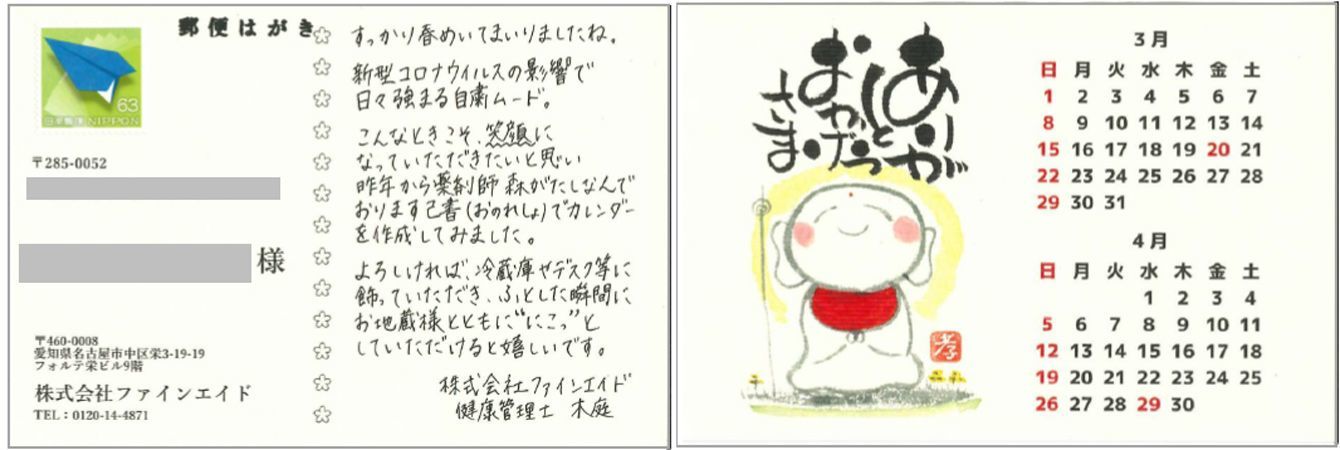 郵便はがき
63
日本郵便 NIPPON
〒285-0052
様
〒460-0008
愛知県名古屋市中区栄3-19-19
フォルテ栄ビル9階
株式会社ファインエイド
TEL:0120-14-4871
すっかり春めいてまいりましたね。
新型コロナウイルスの影響で
日々強まる自粛ムード。
こんなときこそ、笑顔に
なっていただきたいと思い
昨年から薬剤師 森がたしなんで
おります己書(おのれしょ)でカレンダー
を作成してみました。
よろしければ、冷蔵庫やデスク等に
飾っていただき、ふとした瞬間に
お地蔵様とともに"にこっ"と
していただけると嬉しいです。
株式会社ファインエイド
健康管理士 木庭
ありが
とう
おかげ
さま
孝子
3月
日 月 火 水 木 金 土
1 2 3 4 5 6 7
8 9 10 11 12 13 14
15 16 17 18 19 20 21
22 23 24 25 26 27 28
29 30 31
4月
日 月 火 水 木 金 土
1 2 3 4
5 6 7 8 9 10 11
12 13 14 15 16 17 18
19 20 21 22 23 24 25
26 27 28 29 30